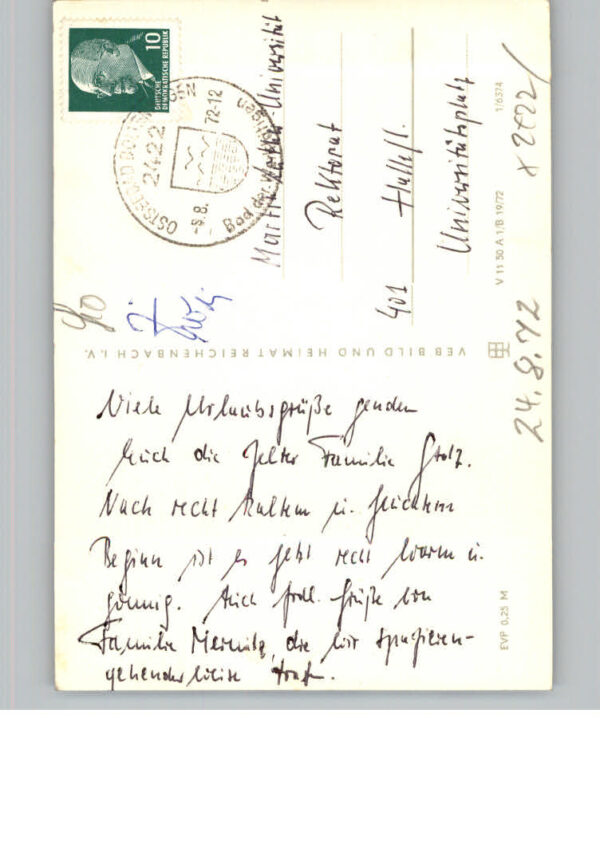 10
DEUTSCHE
DEMOKRATISCHE REPUBLIK
OSTSEEBAD
2422
-9.8.
72-12
Bad der Werktätigen
Martin Luther Universität
Rektorat
401 Halle/S.
Universitätsplatz
V 11 50 A 1/B 19/72
1/6374
24.8.72
VEB BILD UND HEIMAT REICHENBACH I.V.
Viele Urlaubsgrüße senden
Euch die Zelter Familie Stolz.
Nach recht kaltem u. feuchtem
Beginn ist es jetzt recht warm u.
sonnig. Auch frdl. Grüße von
Familie Mernitz, die wir spazieren-
gehenderweise trafen.
EVP 0,25 M